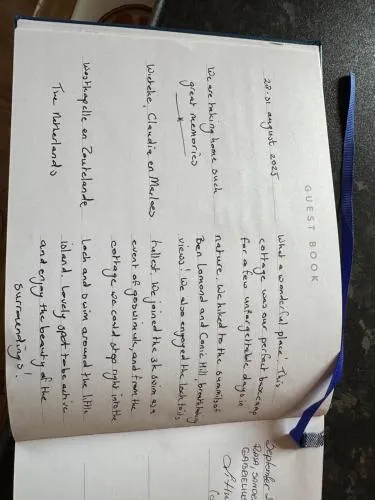 GUEST BOOK
28-31 august 2025
We are taking home such
great memories
x
Wieteke, Claudia en Marloes
Westkapelle en Zoutelande
The Netherlands
What a wonderful place. This
cottage was our perfect basecamp
for a few unforgettable days in
nature. We hiked to the summits of
Ben Lomond and Conic Hill,
views! We also the
We joined the 3k swim
event of goswimuk, and from the
cottage we could step right into the
Loch and swim around the little
island. Lovely spot to be active
and enjoy the beauty of the
surroundings!
September